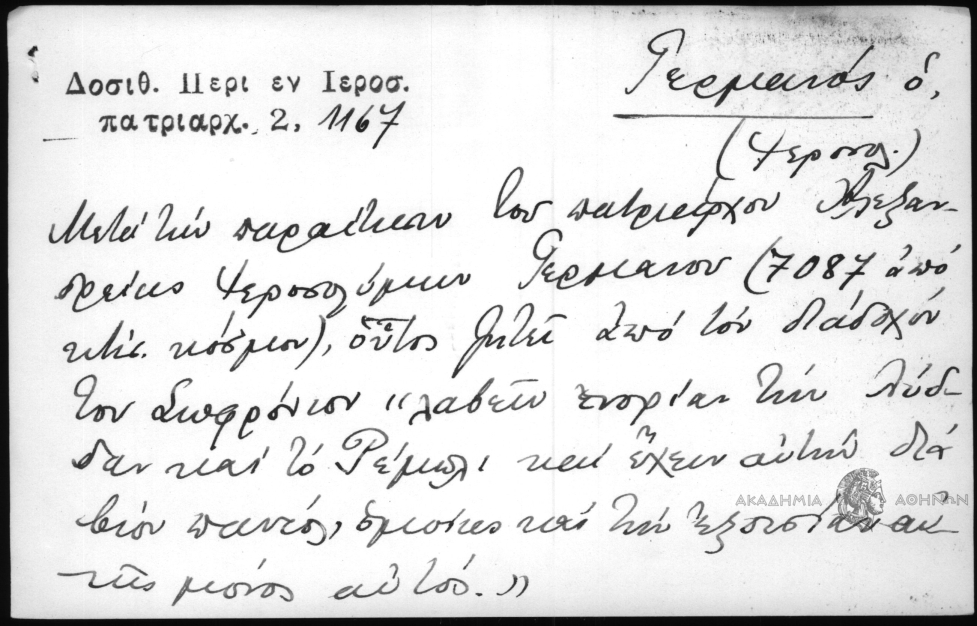 Δοσιθ. Περι εν Ιεροσ.
πατριαρχ. 2, 1167
Γερμανός ὁ,
(Ἱεροσολ.)
Μετά τήν παραίτησιν τοῦ πατριάρχου Ἀλεξαν-
δρείας Ἱεροσολύμων Γερμανοῦ (7087 ἀπό
κτίσ. κόσμου), οὗτος ζητεῖ ἀπό τόν διάδοχόν
του Σωφρόνιον "λαβεῖν ἐνορίαν τήν Λύδ-
δαν καί τό Ρέμπλι καί ἔχειν αὐτήν διά
βίου παντός, ὁμοίως καί τήν ἐξουσίαν
τῆς μονῆς αὐτοῦ."
ΑΚΑΔΗΜΙΑ ΑΘΗΝΩΝ